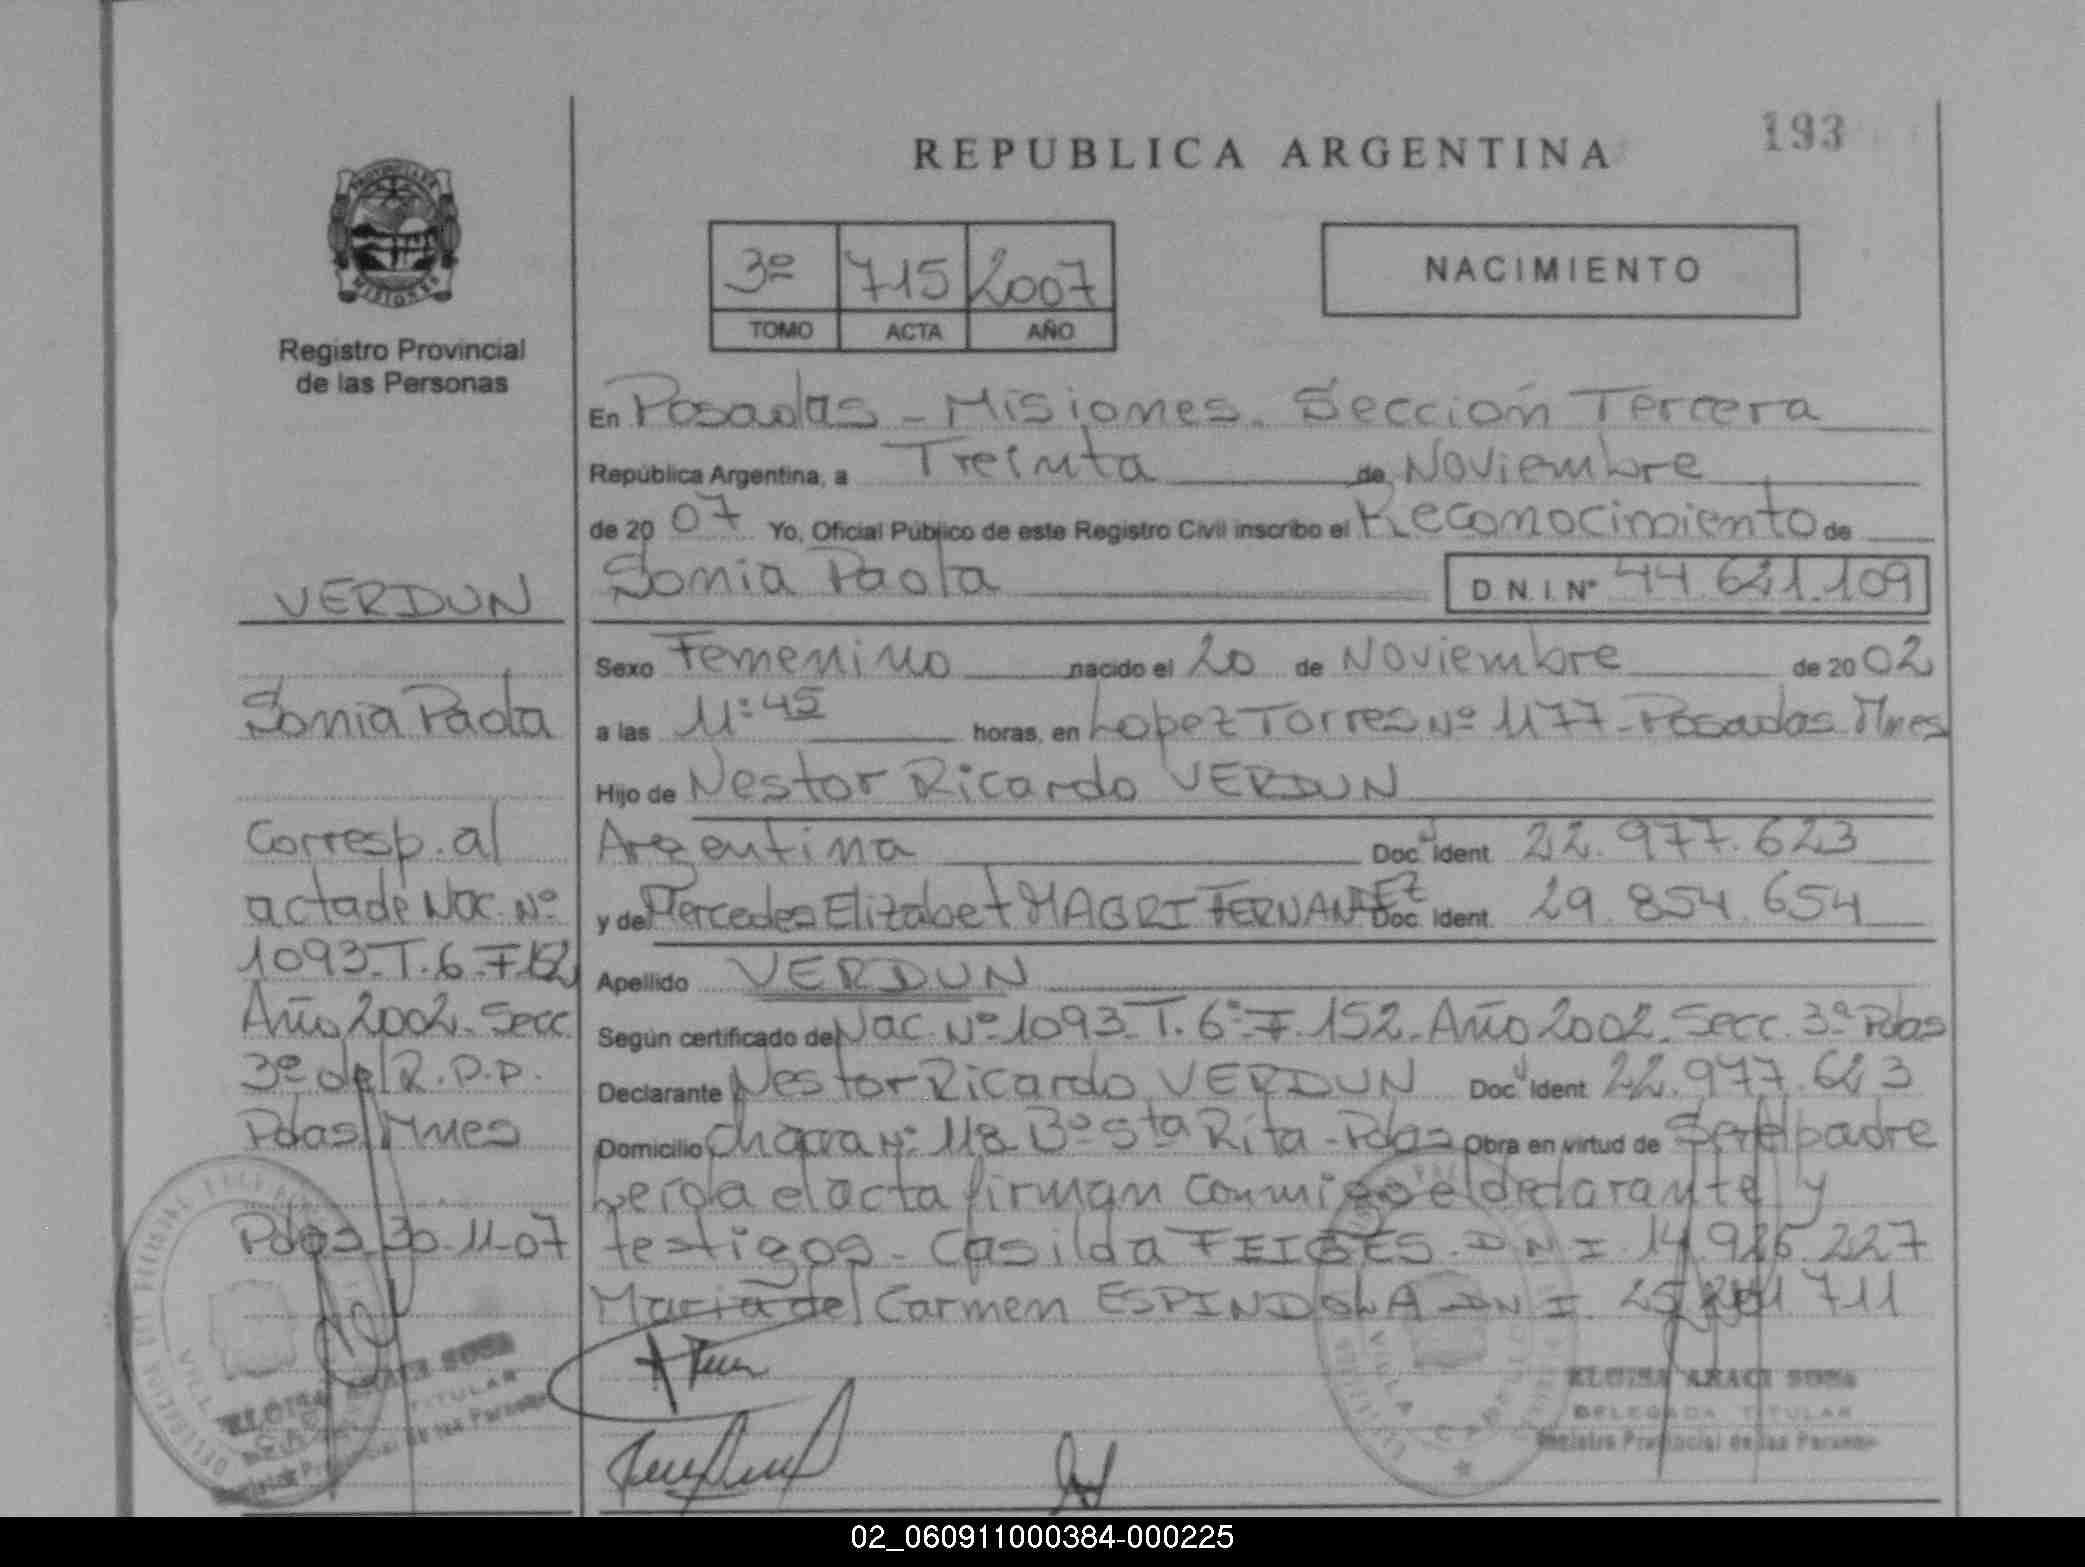 193
REPUBLICA ARGENTINA
PROVINCIA DE
MISIONES
Registro Provincial
de las Personas
3º 715 2007
TOMO ACTA AÑO
NACIMIENTO
En Posadas - Misiones. Sección Tercera
República Argentina, a Treinta de Noviembre
de 2007 Yo, Oficial Público de este Registro Civil inscribo el Reconocimiento de
Sonia Paola D.N.I. Nº 44.621.109
Sexo Femenino nacido el 20 de Noviembre de 2002
a las 11:45 horas, en Lopez Torres Nº 1177 - Posadas Mnes
Hijo de Nestor Ricardo VERDUN
Argentina Doc. Ident. 22.977.623
y de Mercedes Elizabet MAGRI FERNANDEZ Doc. Ident. 29.854.654
Apellido VERDUN
Según certificado de Nac. Nº 1093 - T. 6º F. 152 - Año 2002. Secc. 3ª Pdas
Declarante Nestor Ricardo VERDUN Doc. Ident. 22.977.623
Domicilio Chacra Nº 118 Bº Sta Rita - Pdas Obra en virtud de Ser el padre
leída el acta firman conmigo el declarante y
testigos - Casilda DNI. 14.925.227
Maria del Carmen ESPINDOLA DNI. 711
VERDUN
Sonia Paola
Corresp. al
acta de Nac. Nº
1093 - T. 6 - F 152
Año 2002. Secc.
3ª del R.P.P.
Pdas Mnes
Pdas 30-11-07
ELOISA ARACI SOSA
DELEGADA TITULAR
Registro Provincial de las Personas
ELOISA ARACI SOSA
DELEGADA TITULAR
Registro Provincial de las Personas
02_060911000384-000225